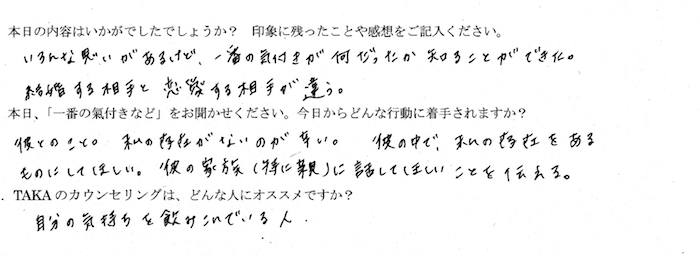 本日の内容はいかがでしたでしょうか？ 印象に残ったことや感想をご記入ください。
いろんな思いがあるけど、一番の気付きが何だったか知ることができた。
結婚する相手と恋愛する相手が違う。
本日、「一番の氣付きなど」をお聞かせください。今日からどんな行動に着手されますか？
彼とのこと。私の存在がないのが辛い。 彼の中で、私の存在をある
ものにしてほしい。彼の家族（特に親）に話してほしいことを伝える。
. TAKAのカウンセリングは、どんな人にオススメですか？
自分の気持ちを飲みこんでいる人．